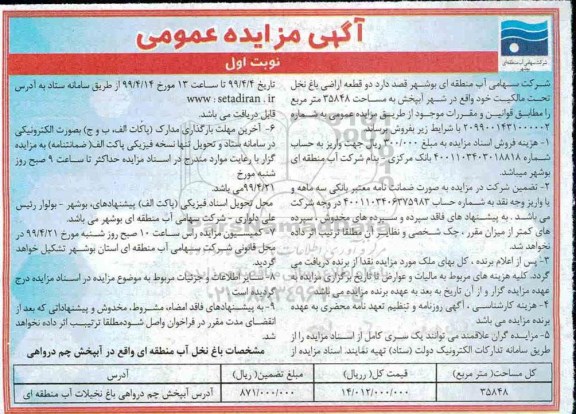 آگهی مزایده عمومی
نوبت اول
شرکت سهامی آب منطقه ای
بوشهر
شرکت سهامی آب منطقه ای بوشهر قصد دارد دو قطعه اراضی باغ نخل
تحت مالکیت خود واقع در شهر آبپخش به مساحت ۳۵۸۴۸ متر مربع
را مطابق قوانین و مقررات موجود از طریق مزایده عمومی به شماره
با شرایط زیر بفروش برساند.
۱- هزینه فروش اسناد مزایده به مبلغ ریال جهت واریز به حساب
شماره ۴۰۰۱۱۰۳۴۰۳۰۱۸۸۱۸ بانک مرکزی - بنام شرکت آب منطقه ای
بوشهر میباشد.
۲- تضمین شرکت در مزایده به صورت ضمانت نامه معتبر بانکی سه ماهه و
یا واریز وجه نقد به شماره حساب ۴۰۰۱۱۰۳۴۰۶۳۷۵۹۸۳ در وجه شرکت
می باشد. به پیشنهاد های فاقد سپرده و سپرده های مخدوش، سپرده
های کمتر از میزان مقرر، چک شخصی و نظایر آن مطلقا ترتیب اثر داده
نخواهد شد.
۳- پس از اعلام برنده، کل بهای ملک مورد مزایده نقدا از برنده دریافت می
گردد. کلیه هزینه های مربوط به مالیات و عوارض تا تاریخ برگزاری مزایده به
عهده مزایده گزار و از آن تاریخ به بعد به عهده برنده مزایده می باشد.
۴- هزینه کارشناسی، آگهی روزنامه و تنظیم تعهد نامه محضری به عهده
برنده مزایده می باشد
۵- مزایده گران علاقمند می توانند یک سری کامل از اسناد مزایده را از
طریق سامانه تدارکات الکترونیک دولت (ستاد) تهیه نمایند. اسناد مزایده از
تاریخ ۹۹/۴/۴ تا ساعت ۱۳ مورخ ۹۹/۴/۱۴ از طریق سامانه ستاد به آدرس
www.setadiran.ir
قابل دریافت می باشد.
۶- آخرین مهلت بارگذاری مدارک (پاکات الف، ب و ج) بصورت الکترونیکی
در سامانه ستاد و تحویل تنها نسخه فیزیکی پاکت الف (ضمانتنامه) به مزایده
گزار با رعایت موارد مندرج در اسناد مزایده حداکثر تا ساعت ۹ صبح روز
شنبه مورخ
۹۹/۴/۲۱ می باشد.
محل تحویل اسناد فیزیکی (پاکت الف) پیشنهادهای، بوشهر - بولوار رئیس
علی دلواری - شرکت سهامی آب منطقه ای بوشهر می باشد.
۷- کمیسیون مزایده راس ساعت ۱۰ صبح روز شنبه مورخ ۹۹/۴/۲۱ در
محل قانونی شرکت سهامی آب منطقه ای استان بوشهر تشکیل خواهد
گردید.
۸- سایر اطلاعات و جزئیات مربوط به موضوع مزایده در اسناد مزایده درج
گردیده است
۹- به پیشنهادهای فاقد امضاء، مشروط، مخدوش و پیشنهاداتی که بعد از
انقضای مدت مقرر در فراخوان واصل شود مطلقا ترتیب اثر داده نخواهد
شد.
مشخصات باغ نخل آب منطقه ای واقع در آبپخش چم درواهی
کل مساحت( متر مربع) قیمت کل( ریال) مبلغ تضمین( ریال) آدرس
۳۵۸۴۸ ۱۴/۰۱۲/۰۰۰/۰۰۰ ۸۷۱/۰۰۰/۰۰۰ آدرس آبپخش چم درواهی باغ نخیلات آب منطقه ای